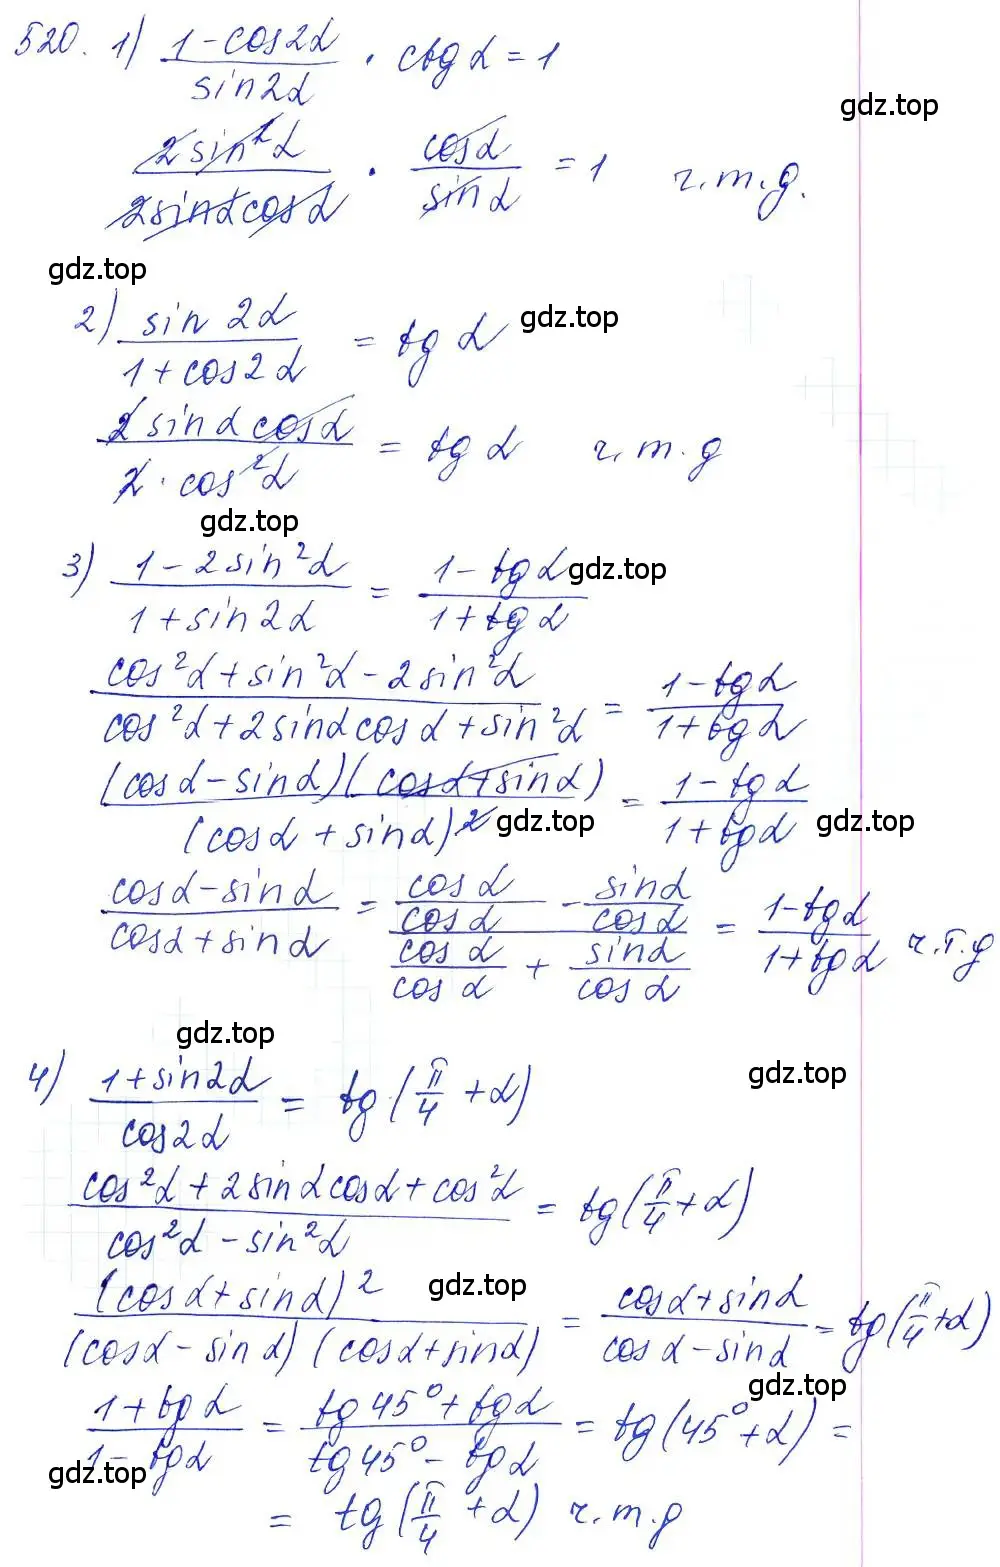 520. 1) (1-cos2α)/(sin2α) · ctgα = 1
gdz.top
(2sin²α)/(2sinαcosα) · (cosα)/(sinα) = 1 ч.т.д.
gdz.top
2) (sin 2α)/(1+cos2α) = tg α
gdz.top
(2sinαcosα)/(2·cos²α) = tg α ч.т.д
gdz.top
3) (1-2sin²α)/(1+sin2α) = (1-tgα)/(1+tgα)
gdz.top
(cos²α+sin²α-2sin²α)/(cos²α+2sinαcosα+sin²α) = (1-tgα)/(1+tgα)
((cosα-sinα)(cosα+sinα))/((cosα+sinα)²) = (1-tgα)/(1+tgα)
gdz.top gdz.top
(cosα-sinα)/(cosα+sinα) = ((cosα)/(cosα) - (sinα)/(cosα))/((cosα)/(cosα) + (sinα)/(cosα)) = (1-tgα)/(1+tgα) ч.т.д
gdz.top
4) (1+sin2α)/(cos2α) = tg(π/4 + α)
gdz.top
(cos²α+2sinαcosα+cos²α)/(cos²α-sin²α) = tg(π/4+α)
gdz.top
((cosα+sinα)²)/((cosα-sinα)(cosα+sinα)) = (cosα+sinα)/(cosα-sinα) = tg(π/4+α)
gdz.top
(1+tgα)/(1-tgα) = (tg45°+tgα)/(tg45°-tgα) = tg(45°+α) =
gdz.top
= tg(π/4+α) ч.т.д